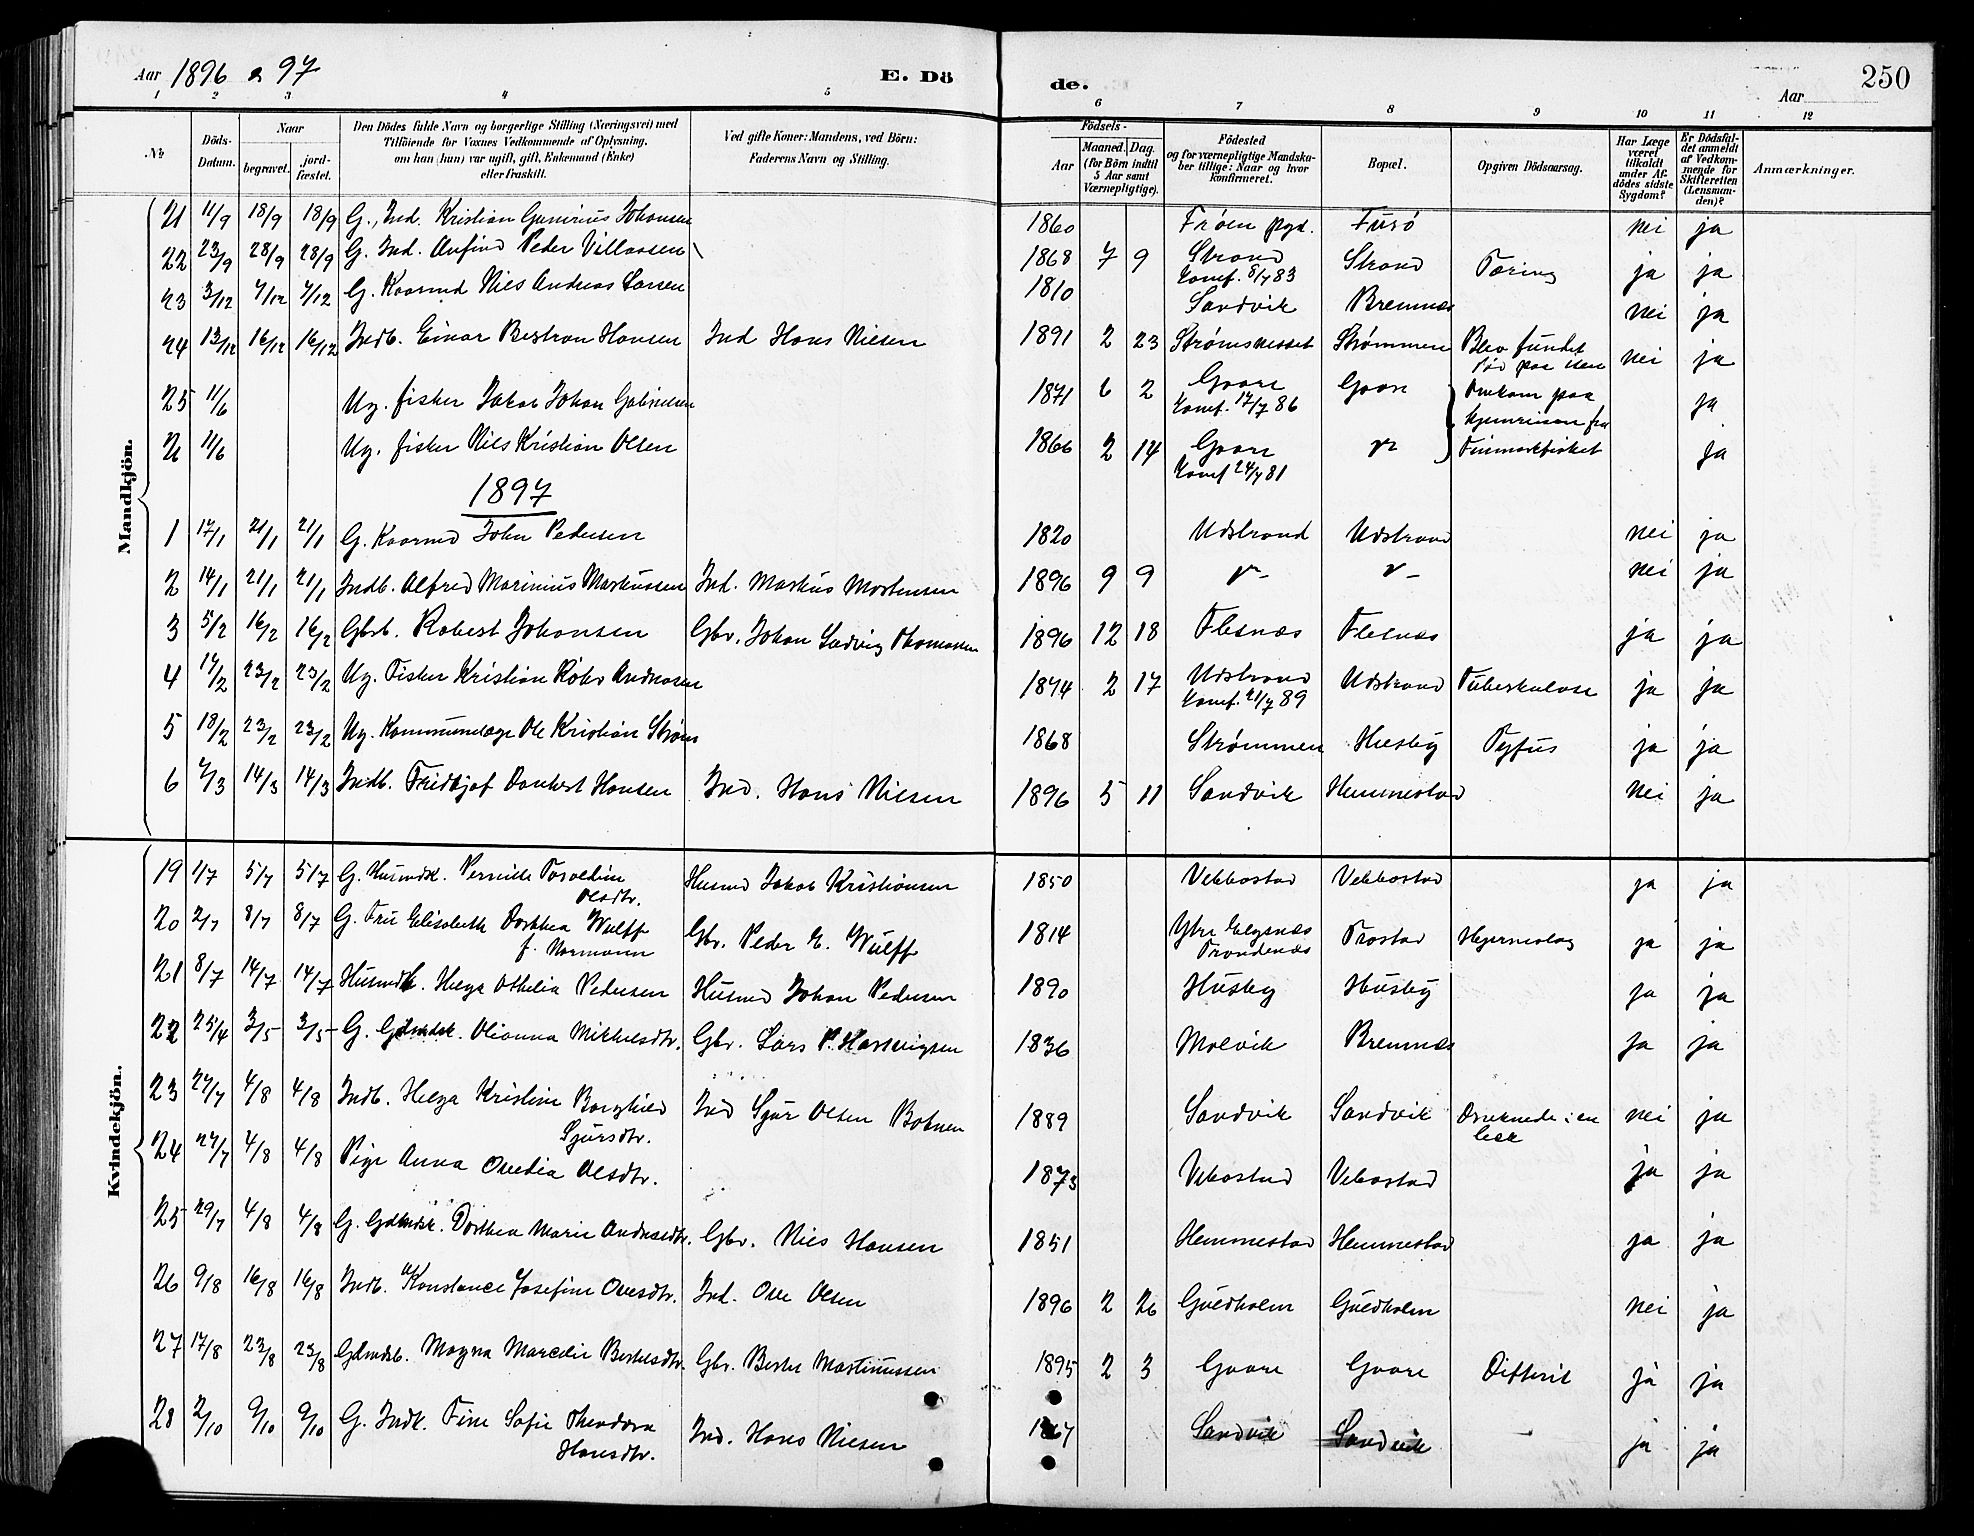 Aar 1896 & 97
E. Dö
de.
Aar
250
1 2 3 4 5 6 7 8 9 10 11 12
№
Döds-Datum.
Naar
begravet.
jord-fæstet.
Den Dödes fulde Navn og borgerlige Stilling (Næringsvei) med
Tilföiende for Voxnes Vedkommende af Oplysning,
om han (hun) var ugift, gift, Enkemand (Enke)
eller fraskilt.
Ved gifte Koner: Mandens, ved Börn:
Faderens Navn og Stilling.
Födsels-
Aar
Maaned. Dag.
(for Börn indtil
5 Aar samt
Værnepligtige).
Födested
og for værnepligtige Mandska-
ber tillige: Naar og hvor
konfirmeret.
Bopæl.
Opgiven Dödsaarsag.
Har Læge
været
tilkaldt
under Af-
dödes sidste
Sygdom?
Er Dödsfal-
det anmeldt
af Vedkom-
mende for
Skifteretten
(Lensman-
den)?
Anmærkninger.
Mandkjön.
21 11/9 18/9 18/9 G., Ind. Kristian Gunerius Johansen 1860 Frøen pgd. Fusø nei ja
22 23/9 28/9 28/9 G. Ind. Anfind Peder Villassen 1868 7 9 Strand Strand Tæring ja ja
Konf. 8/7 83
23 3/12 7/12 7/12 G. Kaarmd Niels Andreas Larsen 1810 Sandvik Bremnæs nei ja
24 13/12 16/12 16/12 Indb. Einar Bertran Hansen Ind Hans Nilsen 1891 2 23 Strømsnesset Strømmen Blev fundet nei ja
død paa isen
25 11/6 Ug. fisker Jakob Johan Gabrielsen 1871 6 2 Gaare Gaare Omkom paa ja
Konf. 17/7 86
hjemreisen fra
26 11/6 Ug. fisker Nils Kristian Olsen 1866 2 14 Gaare Finmarkfisket ja
Konf 24/7 81
1897
1 17/1 21/1 21/1 G. Kaarmd John Pedersen 1820 Udstrand Udstrand nei ja
2 14/1 21/1 21/1 Indb. Alfred Marinius Markussen Ind. Markus Mortensen 1896 9 9 nei ja
3 5/2 16/2 16/2 Gbrb. Robert Johansen Gbr. Johan Ludvig Thomassen 1896 12 18 Flesnæs Flesnæs ja ja
4 17/2 23/2 23/2 Ug. Fisker Kristian Røbo Andreasen 1874 2 17 Udstrand Udstrand Tuberkulose ja ja
Konf. 21/7 89
5 18/2 23/2 23/2 Ug. Kommunelæge Ole Kristian Strøm 1868 Strømmen Husby Tyfus ja ja
6 7/3 14/3 14/3 Indb. Fridtjof Dankert Hansen Ind. Hans Nilsen 1896 5 11 Sandvik Hemmestad nei ja
Kvindekjön.
19 1/7 5/7 5/7 G. Husmdk. Pernille Torveline Husmd Jakob Kristiansen 1850 Vebbostad Vebbostad ja ja
Olsdtr.
20 2/7 8/7 8/7 G. Fru Elisabeth Dorthea Wulff Gbr. Peder E. Wulff 1814 Ytre Elgsnæs Trastad Hjerneslag ja ja
f. Normann Trondenæs
21 8/7 14/7 14/7 Husmdb. Helga Othelia Pedersen Husmd Johan Pedersen 1890 Husby Husby ja ja
22 25/4 3/5 3/5 G. Gdmdsk. Olianna Mikkelsdtr. Gbr. Lars P. Henningsen 1836 Molvik Bremnæs ja ja
23 27/7 4/8 4/8 Indb. Helga Kristine Borghild Ind Sjur Olsen Botnen 1889 Sandvik Sandvik Druknede i en nei ja
Sjursdtr. bæk
24 27/7 4/8 4/8 Pige Anna Ovedia Olsdtr. 1873 Vebostad Vebostad ja ja
25 29/7 4/8 4/8 G. Gdmdsk. Dorthea Marie Andreasdtr. Gbr. Niels Hansen 1851 Hemmestad Hemmestad ja ja
26 9/8 16/8 16/8 Indb. Konstance Josefine Ovesdtr. Ind. Ove Olsen 1896 2 26 Guldholm Guldholm nei ja
27 17/8 23/8 23/8 Gdmdsb. Magna Marcelie Bertelsdtr. Gbr. Bertel Martinussen 1895 2 3 Gaare Gaare Difterit ja ja
28 2/10 9/10 9/10 G. Indk. Fine Sofie Theodora Ind. Hans Nilsen Sandvik Sandvik ja ja
Hansdtr.